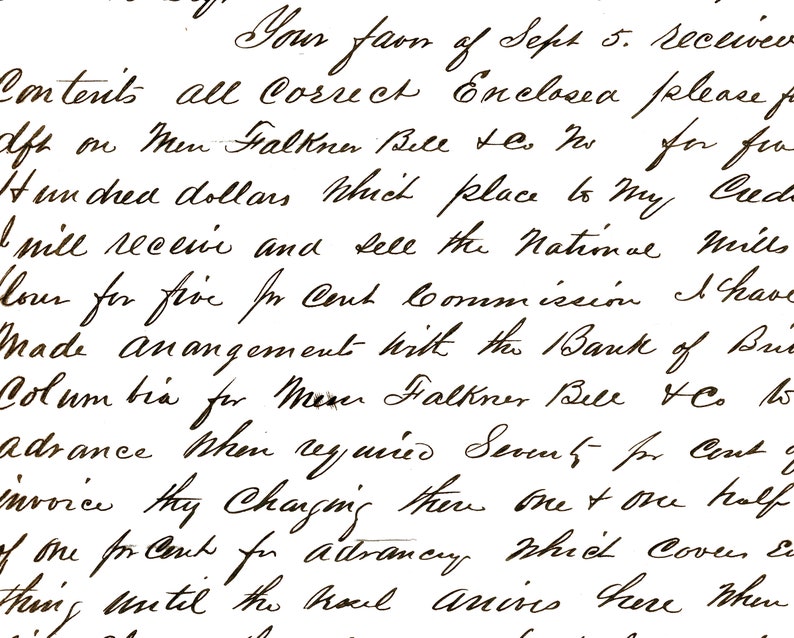 Your favor of Sept 5. received
Contents all correct Enclosed please
dft on Falkner Bell & Co No for five
Hundred dollars which place to my
I will receive and sell the National Mills
flour for five pr cent commission I have
Made arangements with the Bank of
Columbia for Falkner Bell & Co to
advance when required Seventy pr cent of
invoice they Charging there one & one half
of one pr Cent for advancing which covers
thing until the arives here when